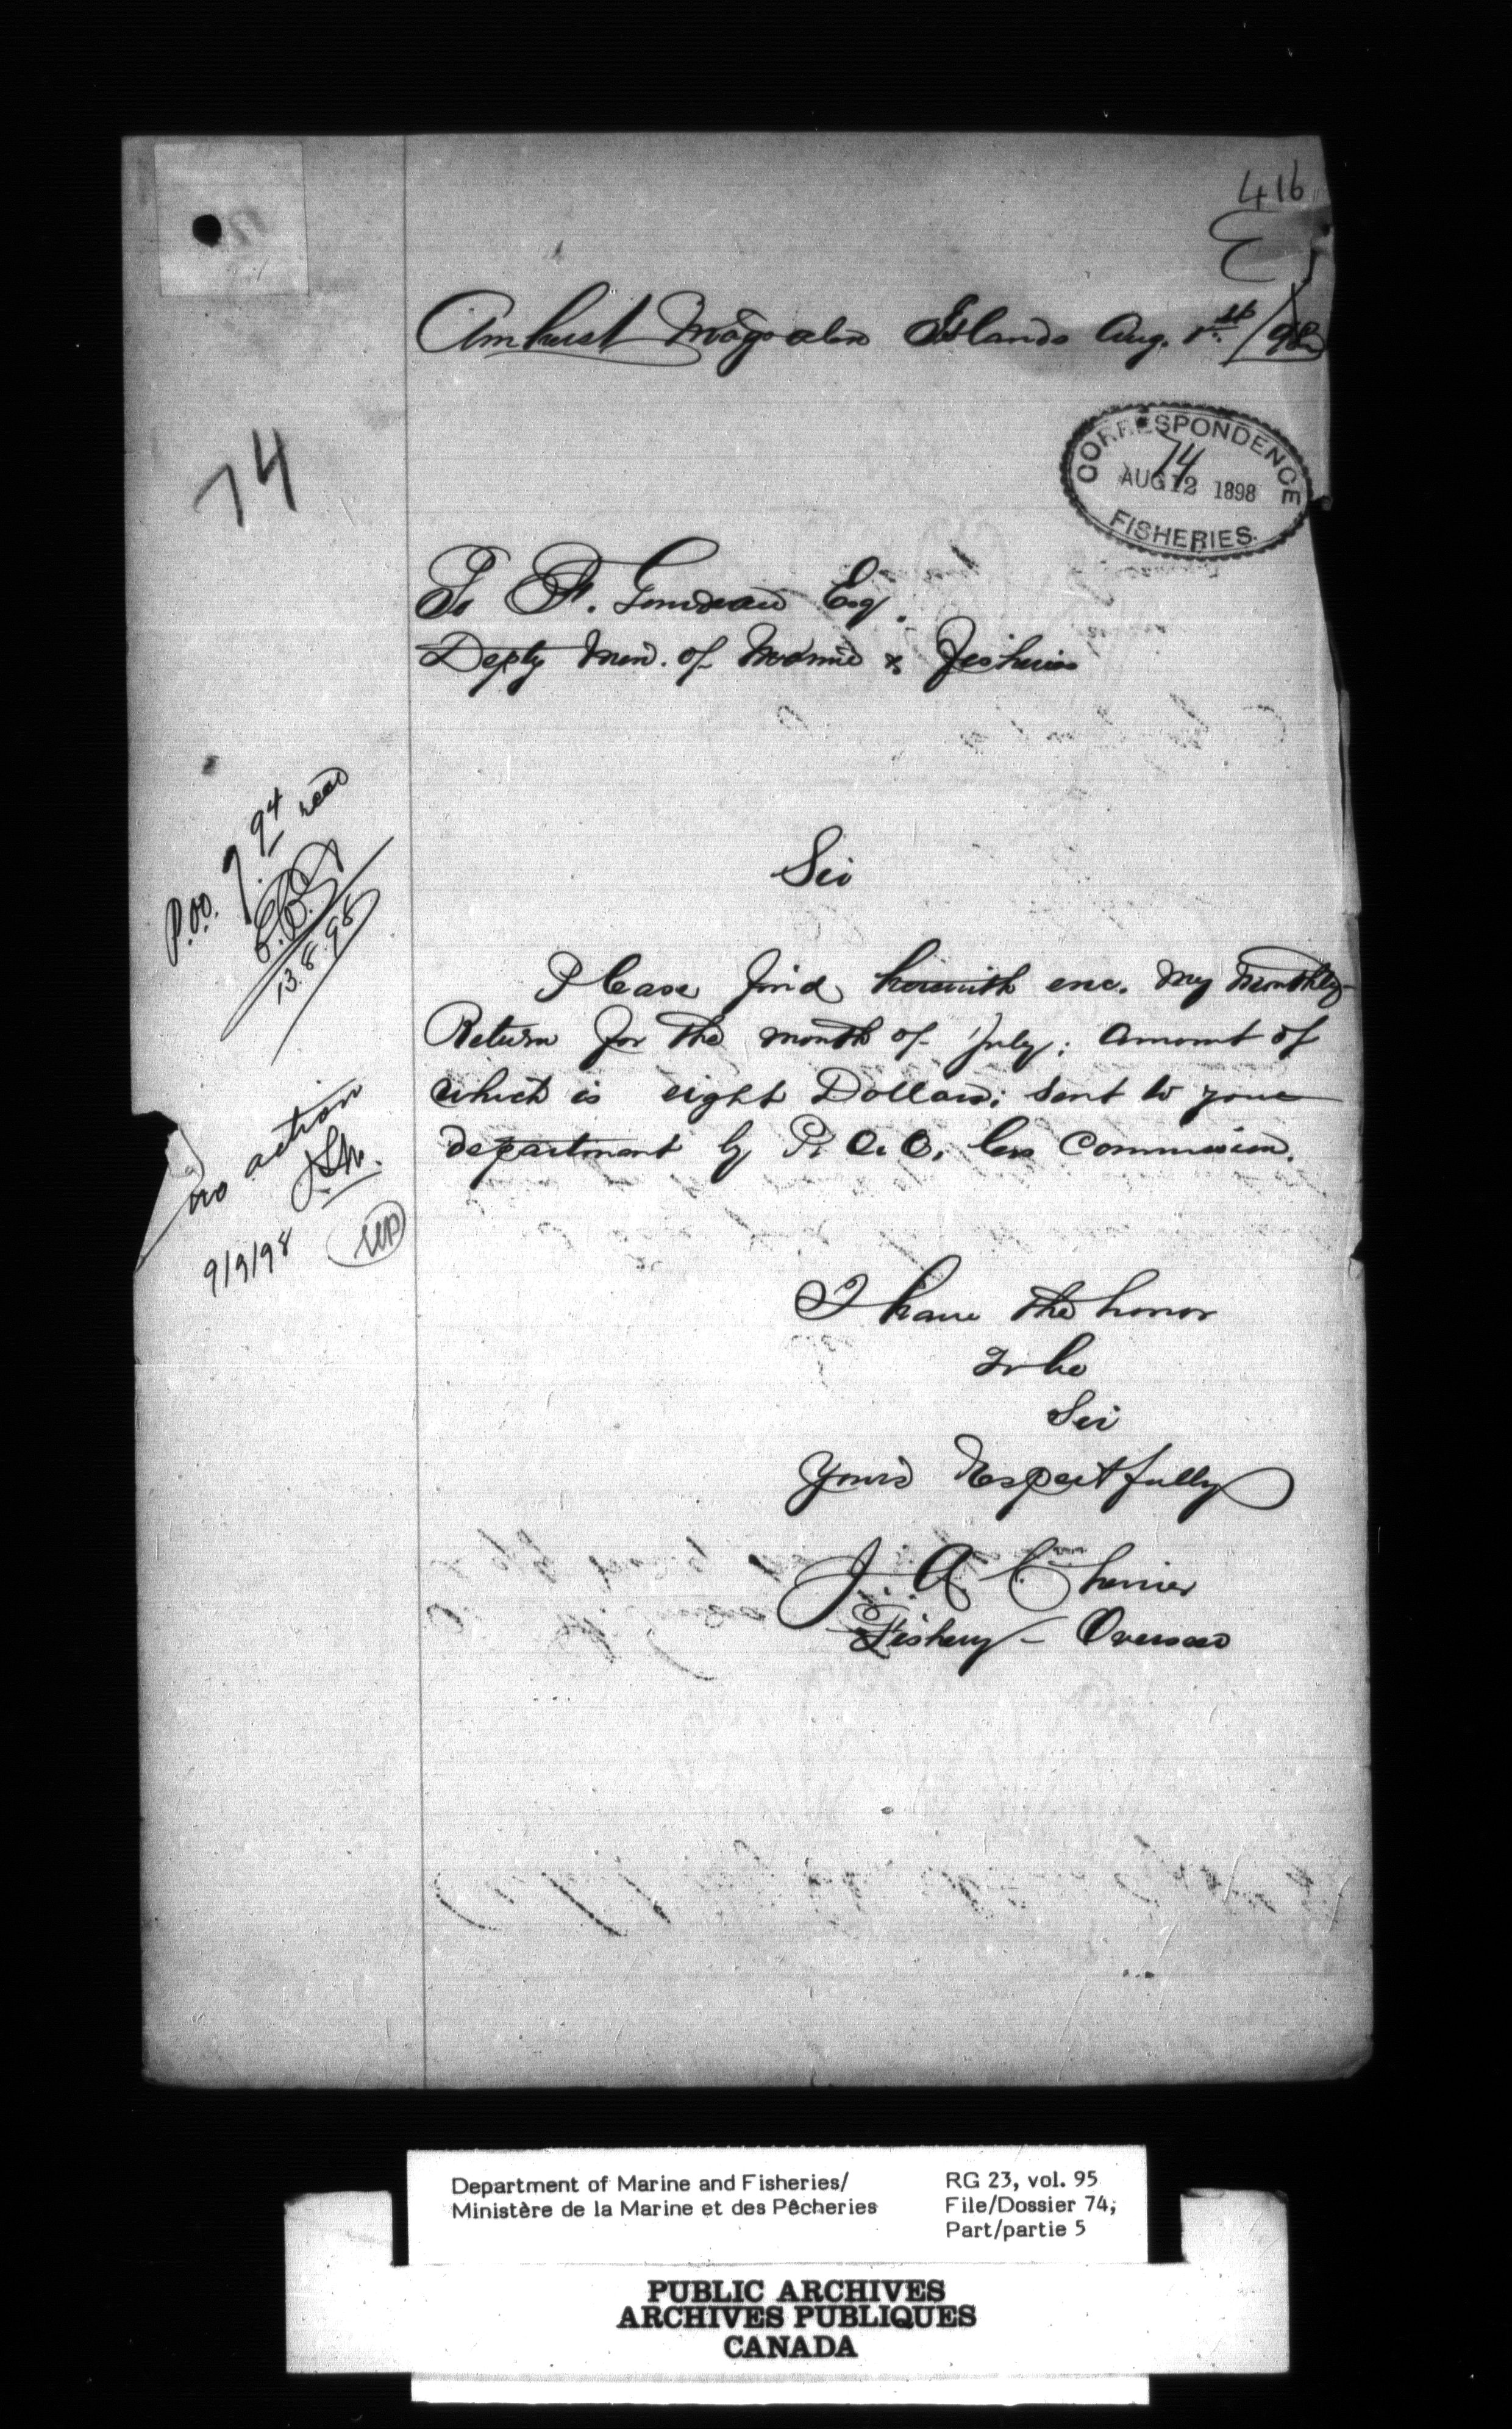 416
Amherst Magdalen Islands Aug. 1st /98
74
CORRESPONDENCE
74
AUG 12 1898
FISHERIES.
To F. Gourdeau Esq.
Depty Min. of Marine & Fisheries
P.O.O. 7.94 recd
13.8.98
Sir
Please find herewith enc. my Monthly
Return for the month of July; amount of
which is eight Dollars; sent to your
department by P.O.O. less Commission.
no action
9/9/98
I have the honor
to be
Sir
Yours Respectfully
J. A. Chenier
Fishery - Overseer
Department of Marine and Fisheries/
Ministère de la Marine et des Pêcheries
RG 23, vol. 95
File/Dossier 74,
Part/partie 5
PUBLIC ARCHIVES
ARCHIVES PUBLIQUES
CANADA